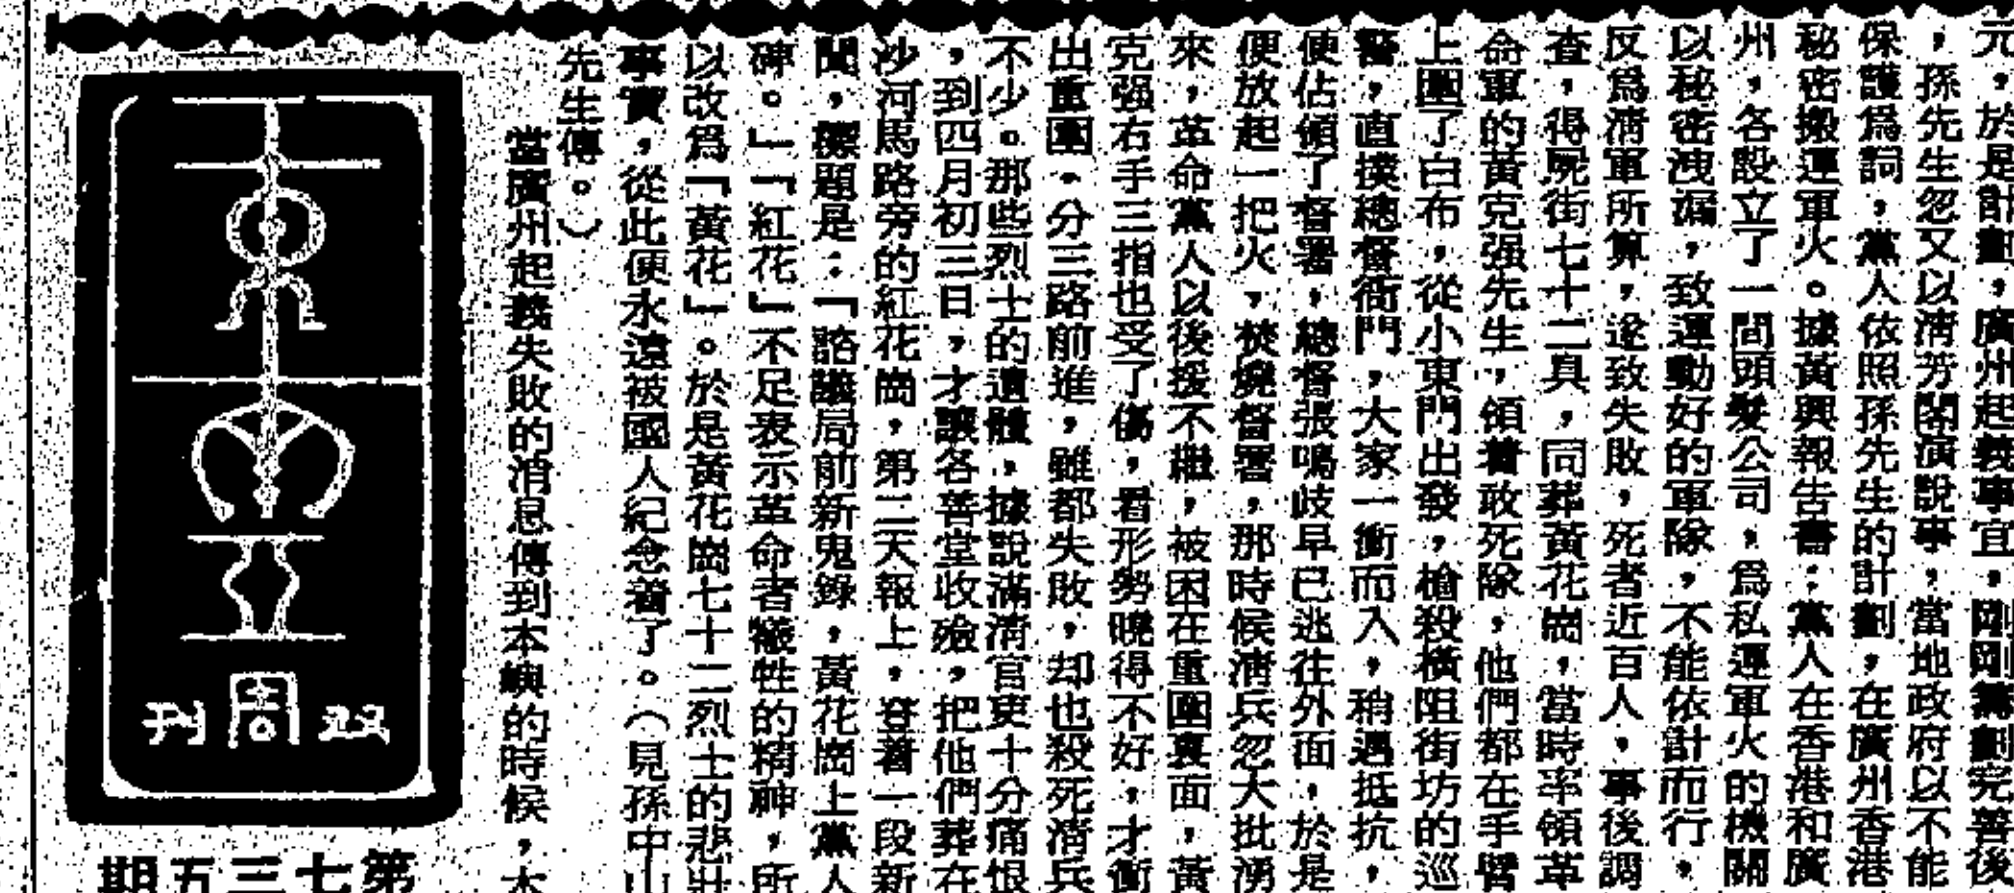 元，於是計劃，廣州起義事宜，剛剛籌劃完善後
，孫先生忽又以清芳閣演說事，當地政府以不能
保護爲詞，黨人依照孫先生的計劃，在廣州香港
秘密搬運軍火。據黃興報告書：黨人在香港和廣
州，各設立了一間頭髮公司，爲私運軍火的機關
以秘密洩漏，致運動好的軍隊，不能依計而行，
反爲清軍所算，遂致失敗，死者近百人，事後調
查，得屍街七十二具，同葬黃花崗，當時率領革
命軍的黃克强先生，領着敢死隊，他們都在手臂
上圍了白布，從小東門出發，槍殺橫阻街坊的巡
警，直撲總督衙門，大家一衝而入，稍遇抵抗，
便佔領了督署，總督張鳴岐早已逃往外面，於是
便放起一把火，焚燒督署，那時候清兵忽大批湧
來，革命黨人以後援不繼，被困在重圍裏面，黃
克强右手三指也受了傷，看形勢曉得不好，才衝
出重圍，分三路前進，雖都失敗，却也殺死清兵
不少。那些烈士的遺體，據說滿清官吏十分痛恨
，到四月初三日，才讓各善堂收殮，把他們葬在
沙河馬路旁的紅花崗，第二天報上，登着一段新
聞，標題是：「諮議局前新鬼錄，黃花崗上黨人
碑。」「紅花」不足表示革命者犧牲的精神，所
以改爲「黃花」。於是黃花崗七十二烈士的悲壯
事實，從此便永遠被國人紀念着了。（見孫中山
先生傳。）
當廣州起義失敗的消息傳到本嶼的時候，本
刊周双
期五三七第